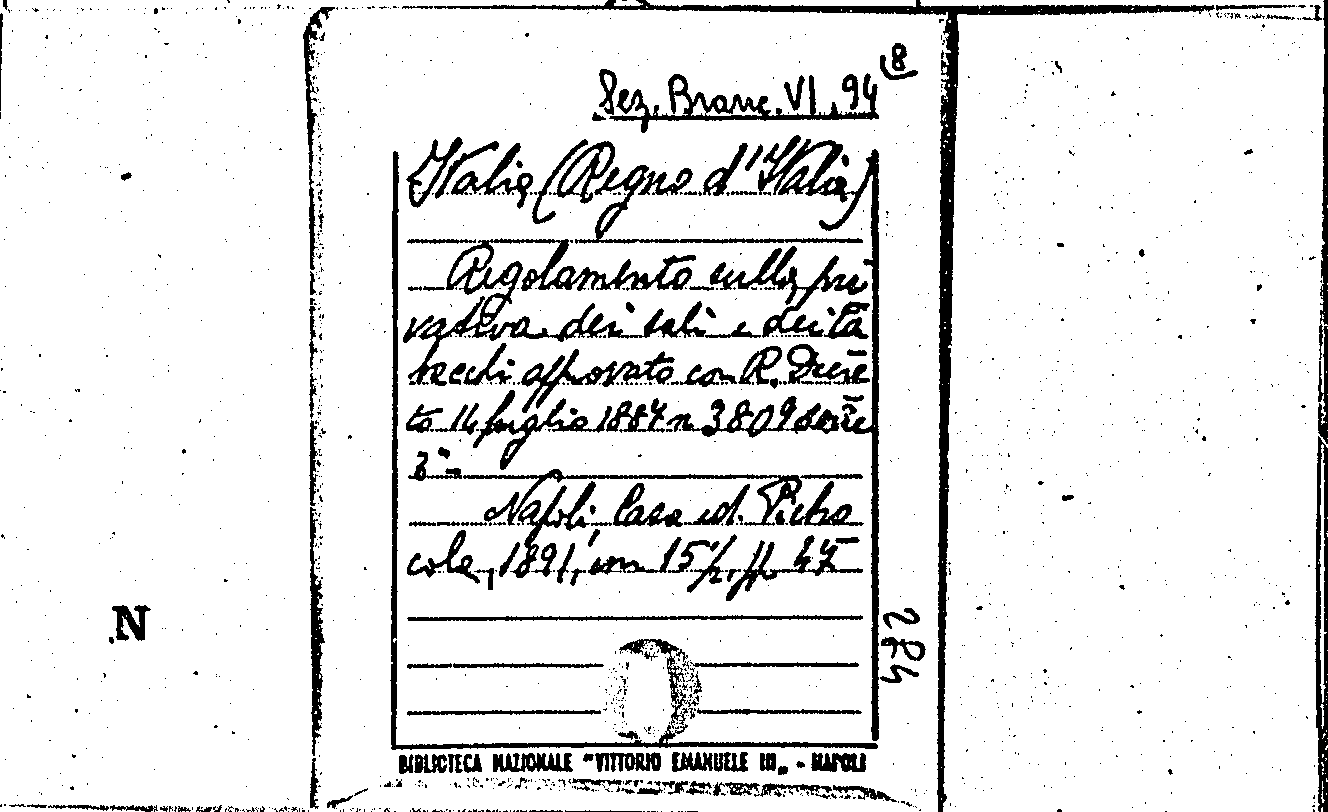 (8
Sez. Branc. VI. 94
Italia (Regno d'Italia)
Regolamento sulla pri
vativa dei sali e dei ta
bacchi approvato con R. Decre
to 14 luglio 1887 n 3809 serie
3ª
Napoli, Casa ed. Pietro
cola, 1891, cm 15½, pp. 47
N
284
BIBLIOTECA NAZIONALE "VITTORIO EMANUELE III„ - NAPOLI